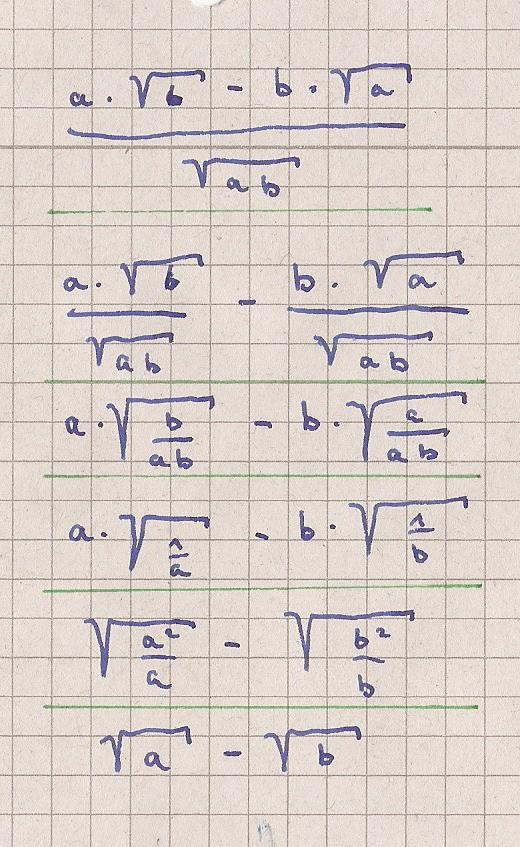 a · √b - b · √a
√ab
a · √b - b · √a
√ab √ab
a · √(b/ab) - b · √(a/ab)
a · √(1/a) - b · √(1/b)
√(a²/a) - √(b²/b)
√a - √b